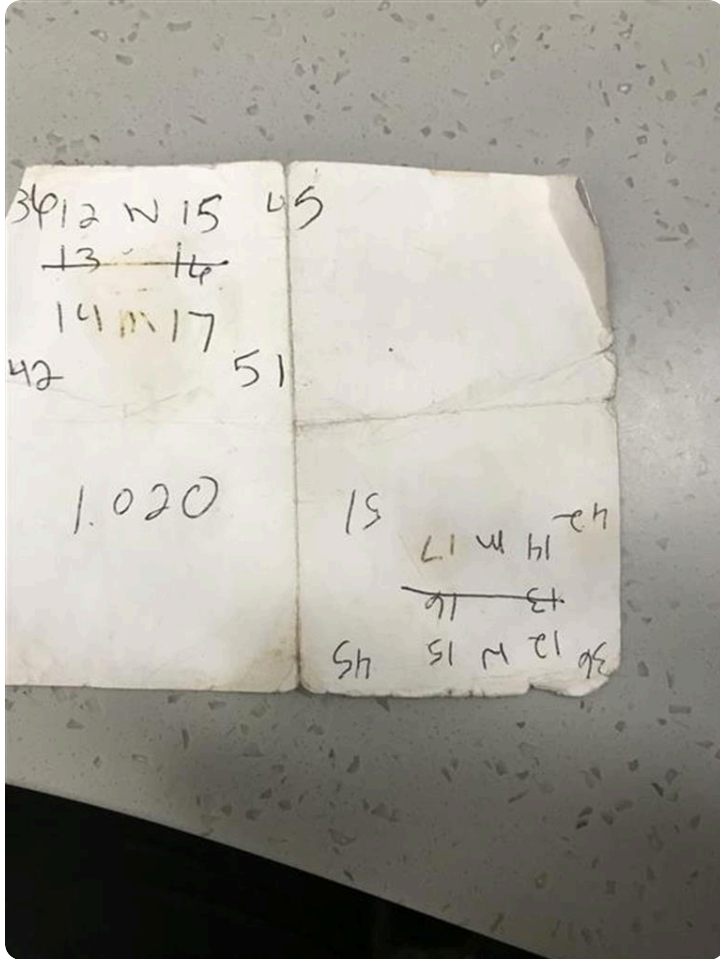 36 12 N 15 45
13 16
14 m 17
42 51
1.020
36 12 N 15 45
13 16
14 m 17
42 51